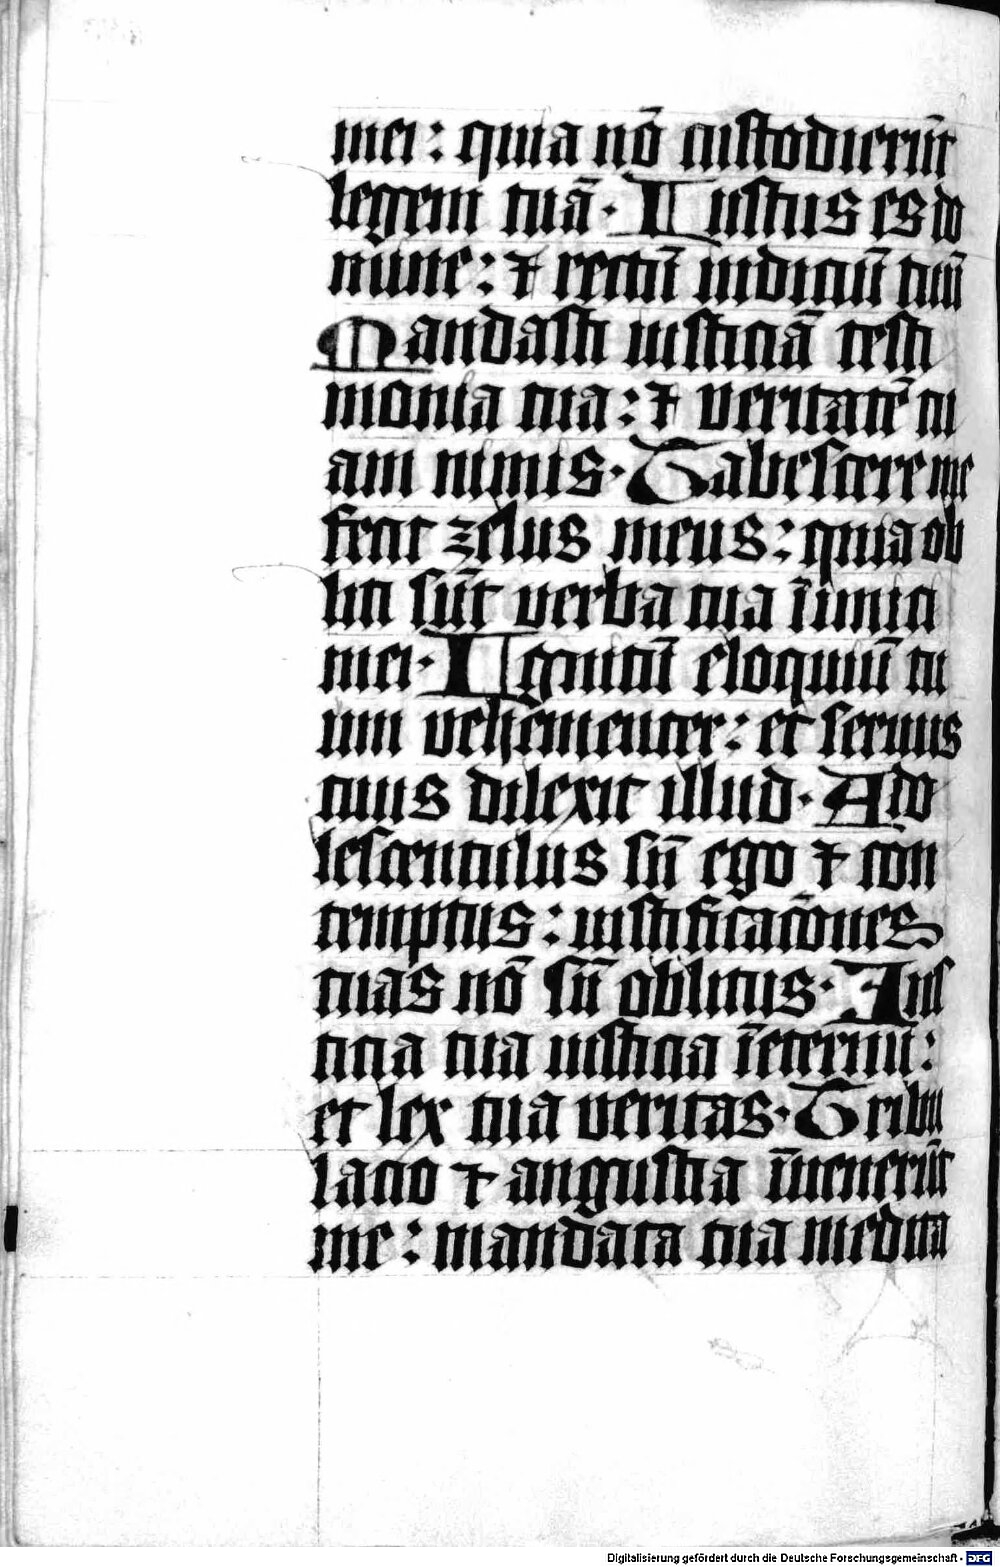 mei: quia nō custodierūt
legem tuā. Iustus es do
mine: ⁊ rectū iudiciū tuū
Mandasti iusticiā testi
monia tua: ⁊ veritatē tu
am nimis. Tabescere me
fecit zelus meus: quia ob
liti sūt verba tua īimici
mei. Ignitū eloquiū tu
um vehementer: et seruus
tuus dilexit illud. Ado
lescentulus sū ego ⁊ con
temptus: iustificacōnes
tuas nō sū oblitus. Ius
ticia tua iusticia īeternū:
et lex tua veritas. Tribu
lacio ⁊ angustia īuenerūt
me: mandata tua medita
Digitalisierung gefördert durch die Deutsche Forschungsgemeinschaft - DFG